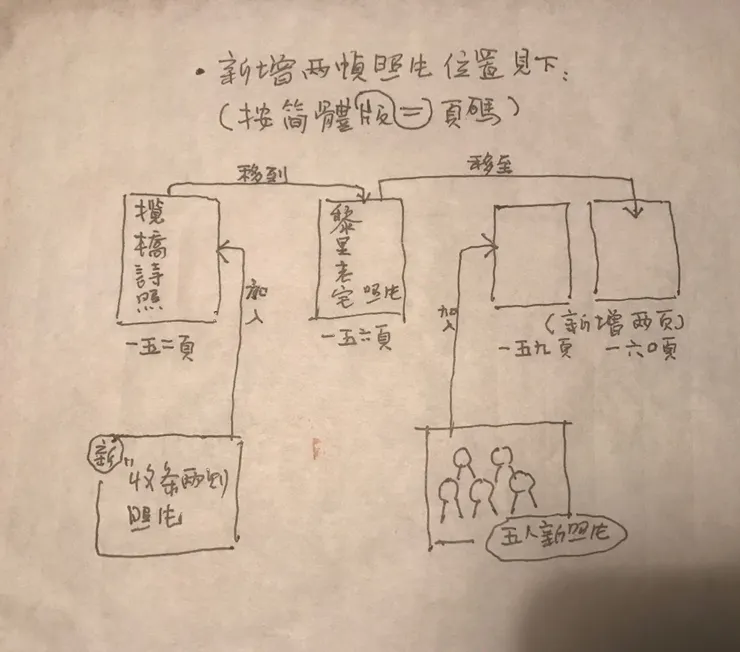 • 新增两幀照片位置見下:
(按简體版=頁碼)
移到
移至
橋詩照
黎里老宅 照片
加入
加入
(新增两页)
一五二頁
一五六頁
一五九頁
一六〇頁
新
"收条两则
照片
五人新照片